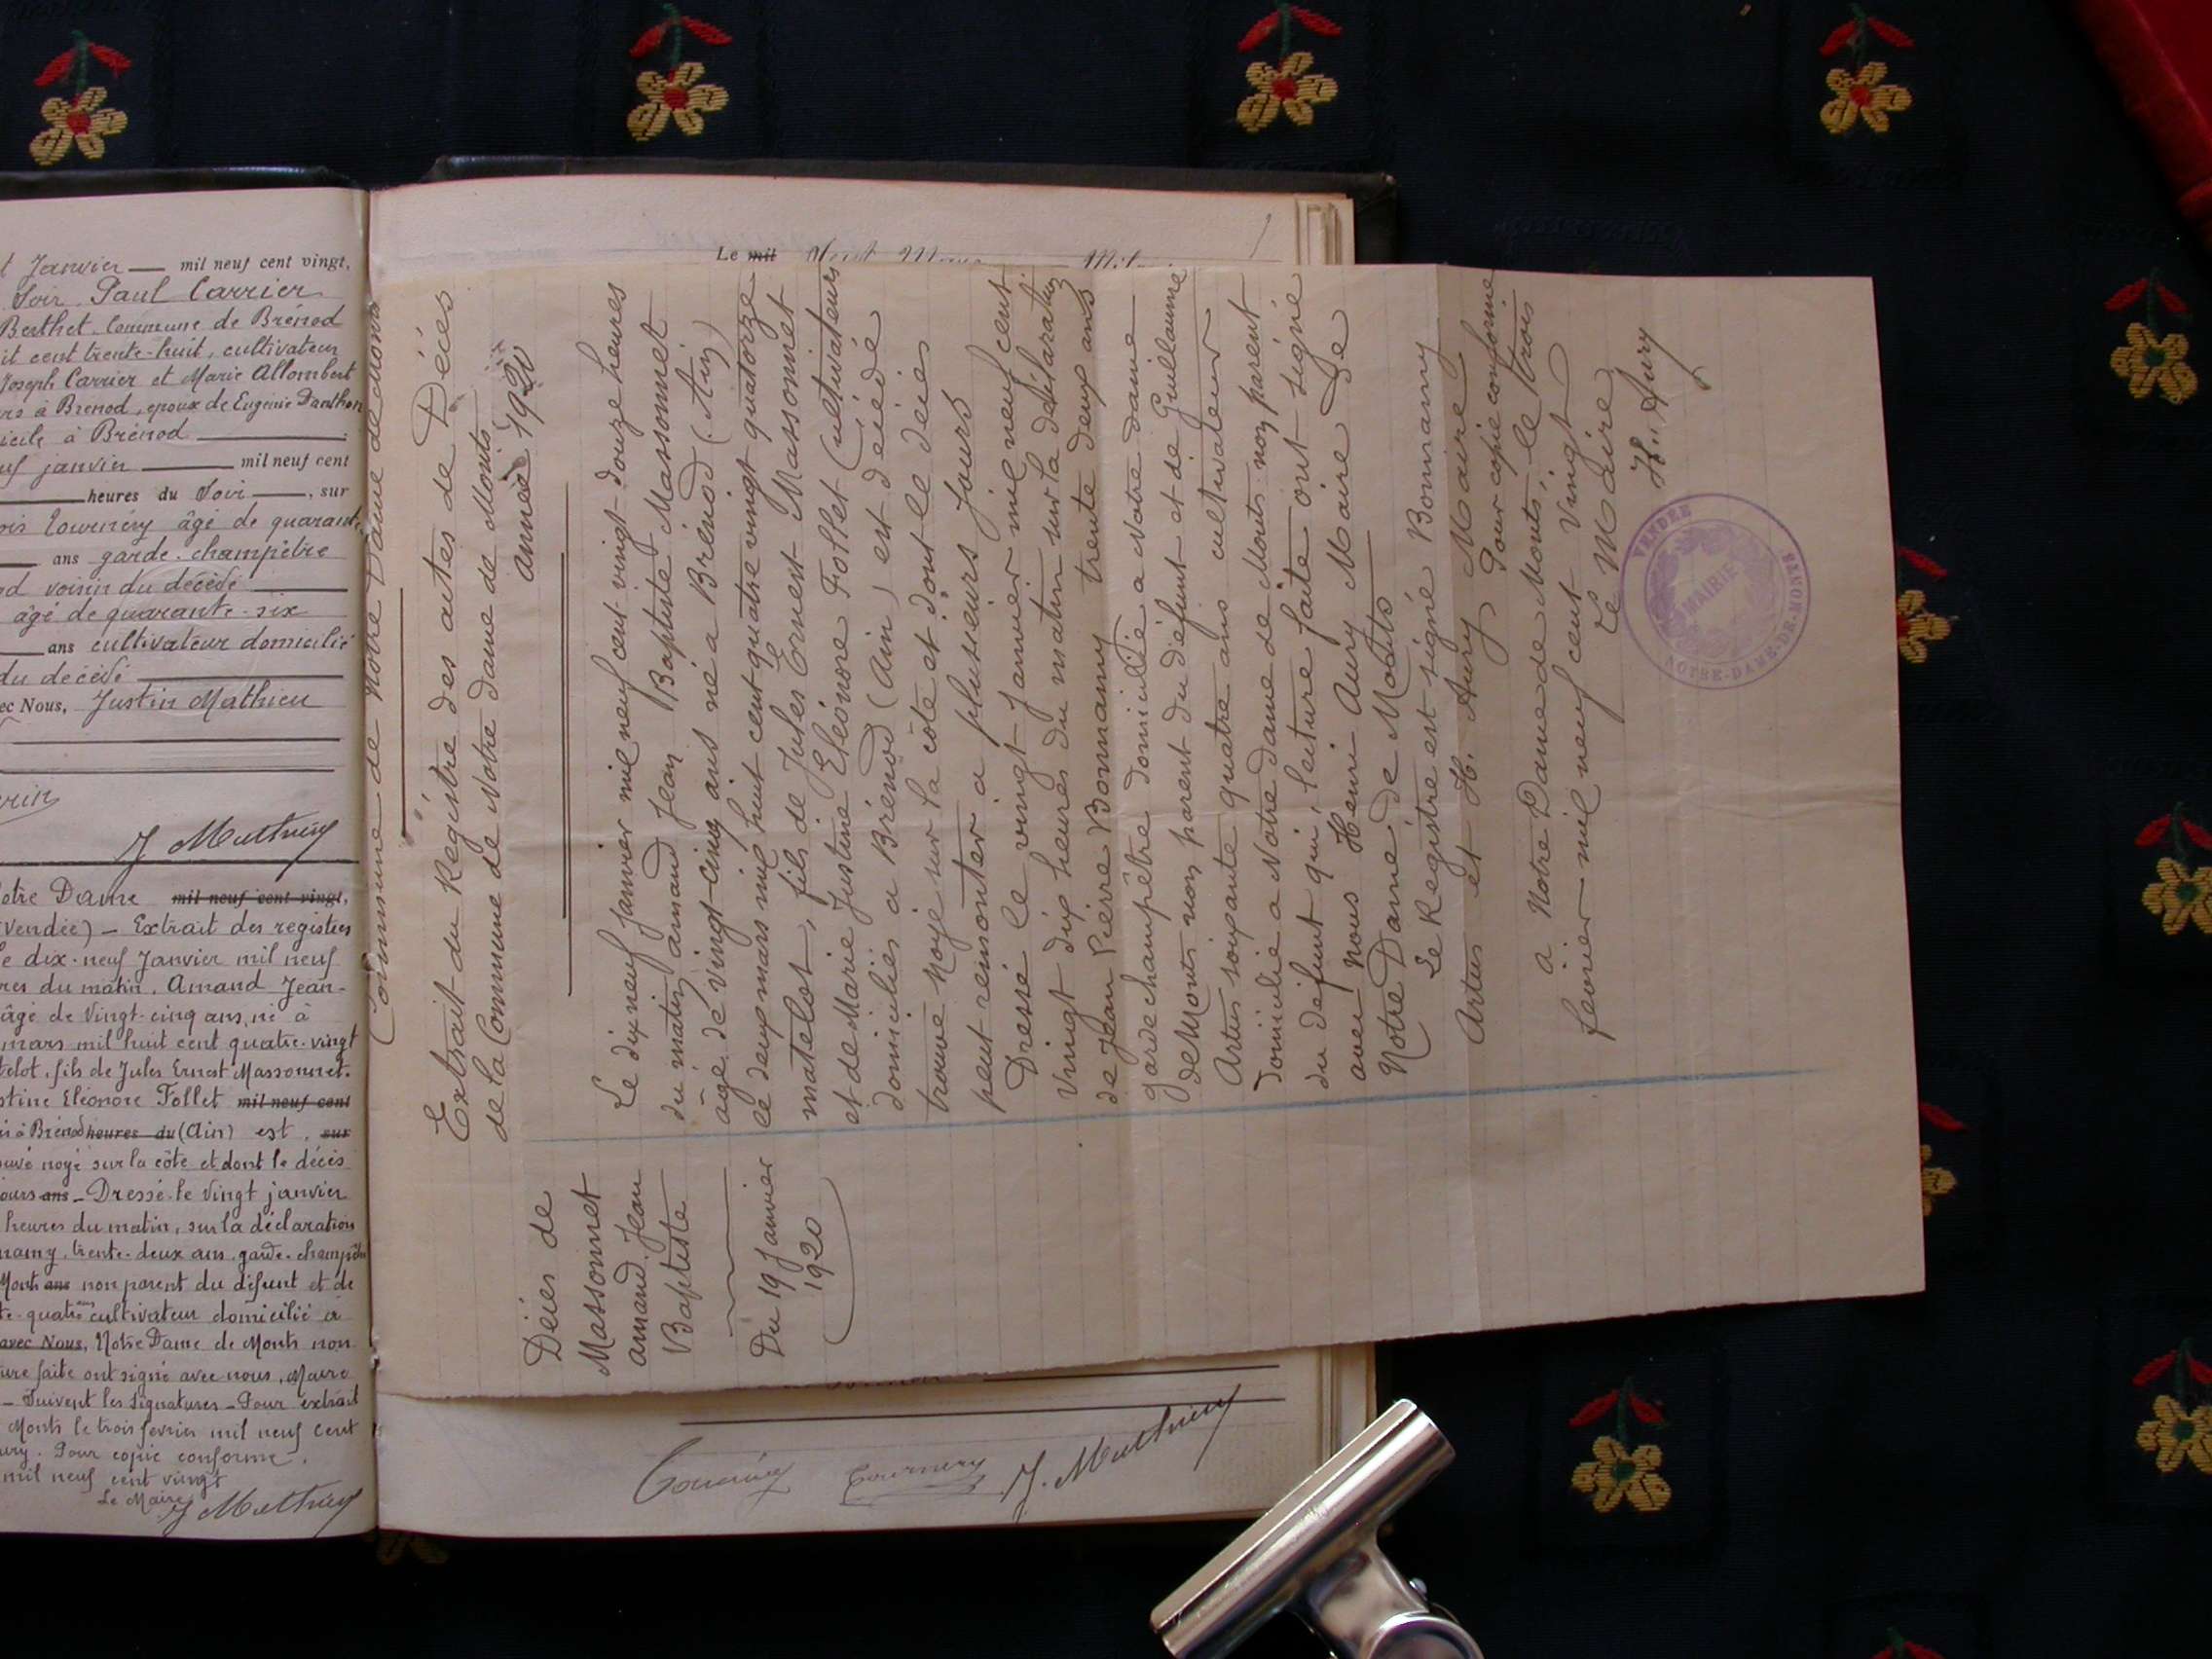 t Janvier — mil neuf cent vingt,
Soir Paul Carrier
Berthet Commune de Brénod
it cent trente-huit, cultivateur
Joseph Carrier et Marie Allombert
rs à Brenod, epoux de Eugénie Danthon
icile à Brénod
uf janvier — mil neuf cent
heures du Soir —, sur
ois Tournéry âgé de quarante
ans garde-champêtre
od voisin du décédé
âgé de quarante-six
ans cultivateur domicilié
du décédé
ec Nous, Justin Mathieu
J Mathieu
otre Dame mil neuf cent vingt,
(Vendée) — Extrait des registres
e dix-neuf Janvier mil neuf
res du matin. Amand Jean-
âgé de Vingt-cinq ans, né à
mars mil huit cent quatre-vingt
telot, fils de Jules Ernest Massonnet.
stine Eléonore Follet mil neuf cent
és à Brénod heures du (Ain) est, sur
ouvé noyé sur la côte et dont le décès
ours ans — Dressé le Vingt janvier
heures du matin, sur la déclaration
namy, trente-deux ans, garde-champêtre
Mont ans non parent du défunt et de
te-quatre ans cultivateur domicilié à
avec Nous, Notre Dame de Monts non
ure faite ont signé avec nous, Maire
— Suivent les signatures — Pour extrait
Monts le trois fevrier mil neuf cent
ury. Pour copie conforme.
mil neuf cent vingt
Le Maire
J Mathieu
Le mil
Commune de Notre Dame de Monts
Extrait du Registre des actes de Décès
de la Commune de Notre Dame de Monts
année 1920
Décès de
Massonnet
amand Jean
Baptiste
Du 19 Janvier
1920
Le dix neuf Janvier mil neuf cent vingt douze heures
du matin amand Jean Baptiste Massonnet
âgé de vingt-cinq ans né à Brénod (Ain)
le deux mars mil huit cent quatre vingt quatorze
matelot, fils de Jules Ernest Massonnet
et de Marie Justine Eléonore Follet Cultivateurs
domiciliés à Brénod (Ain) est décédé
trouvé noyé sur la côte et dont le décès
peut remonter à plusieurs jours
Dressé le vingt Janvier mil neuf cent
vingt dix heures du matin sur la déclaration
de Jean Pierre Bonnamy trente deux ans
garde champêtre domicilié a Notre dame
de Monts non parent du défunt et de Guillaume
Artus soixante quatre ans cultivateur
domicilié a Notre dame de Monts non parent
du défunt qui, lecture faite ont signé
avec nous Henri Aury Maire de
Notre Dame de Monts
Le Registre est signé Bonnamy
Artus et H. Aury Maire
Pour copie conforme
a Notre Dame de Monts, le trois
fevrier mil neuf cent Vingt
Le Maire
H. Aury
VENDÉE
MAIRIE
NOTRE-DAME-DE-MONTS
Tournery
J. Mathieu